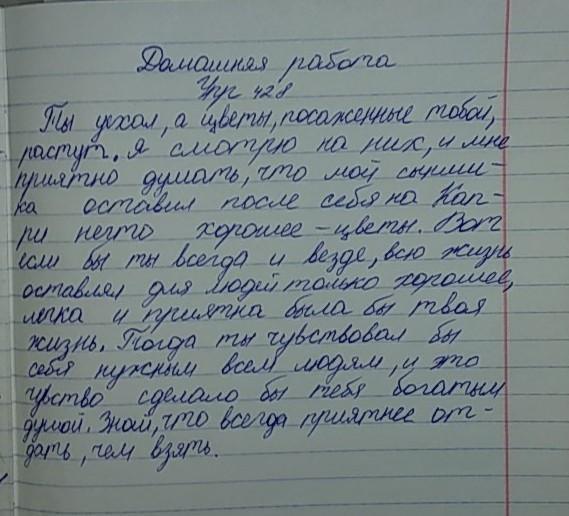 Домашняя работа
Упг 428
Ты уехал, а цветы, посаженные тобой,
растут. Я смотрю на них, и мне
приятно думать, что мой сыниш-
ка оставил после себя на Кап-
ри нечто хорошее – цветы. Вот
если бы ты всегда и везде, всю жизнь
оставлял для людей только хорошее,
легка и приятна была бы твоя
жизнь. Тогда ты чувствовал бы
себя нужным всем людям, и это
чувство сделало бы тебя богатым
думой. Знай, что всегда приятнее от-
дать, чем взять.